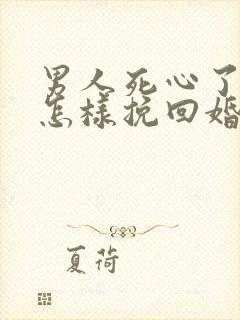 男人死心了
怎样挽回婚
夏荷